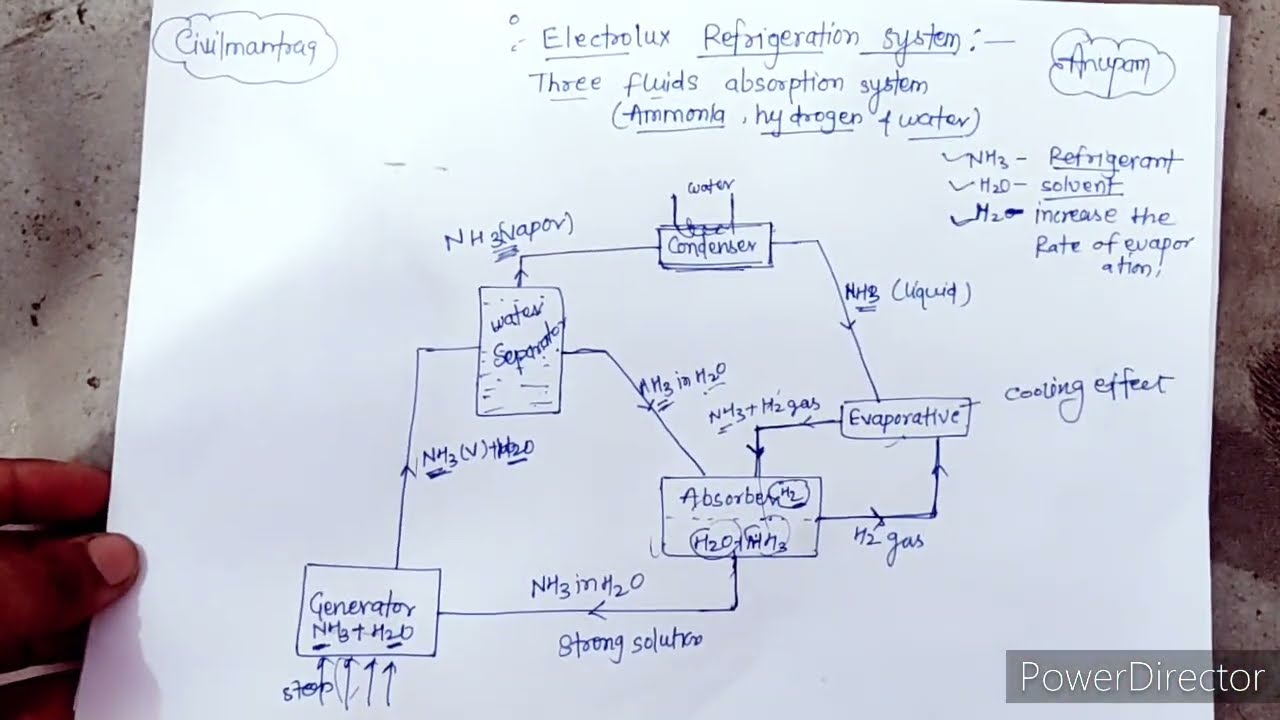 Civilmantraq
Electrolux Refrigeration system:-
Anupam
Three fluids absorption system
(Ammonia, hydrogen & water)
NH3 - Refrigerant
H2O - solvent
H2 - increase the
Rate of evapor
ation;
water
NH3(vapor)
Condenser
NH3 (liquid)
water
Separator
NH3 in H2O
NH3+H2 gas
Evaporative
cooling effect
NH3(V)+H2O
Absorber H2
H2O+NH3
H2 gas
NH3 in H2O
Strong solution
Generator
NH3+H2O
PowerDirector